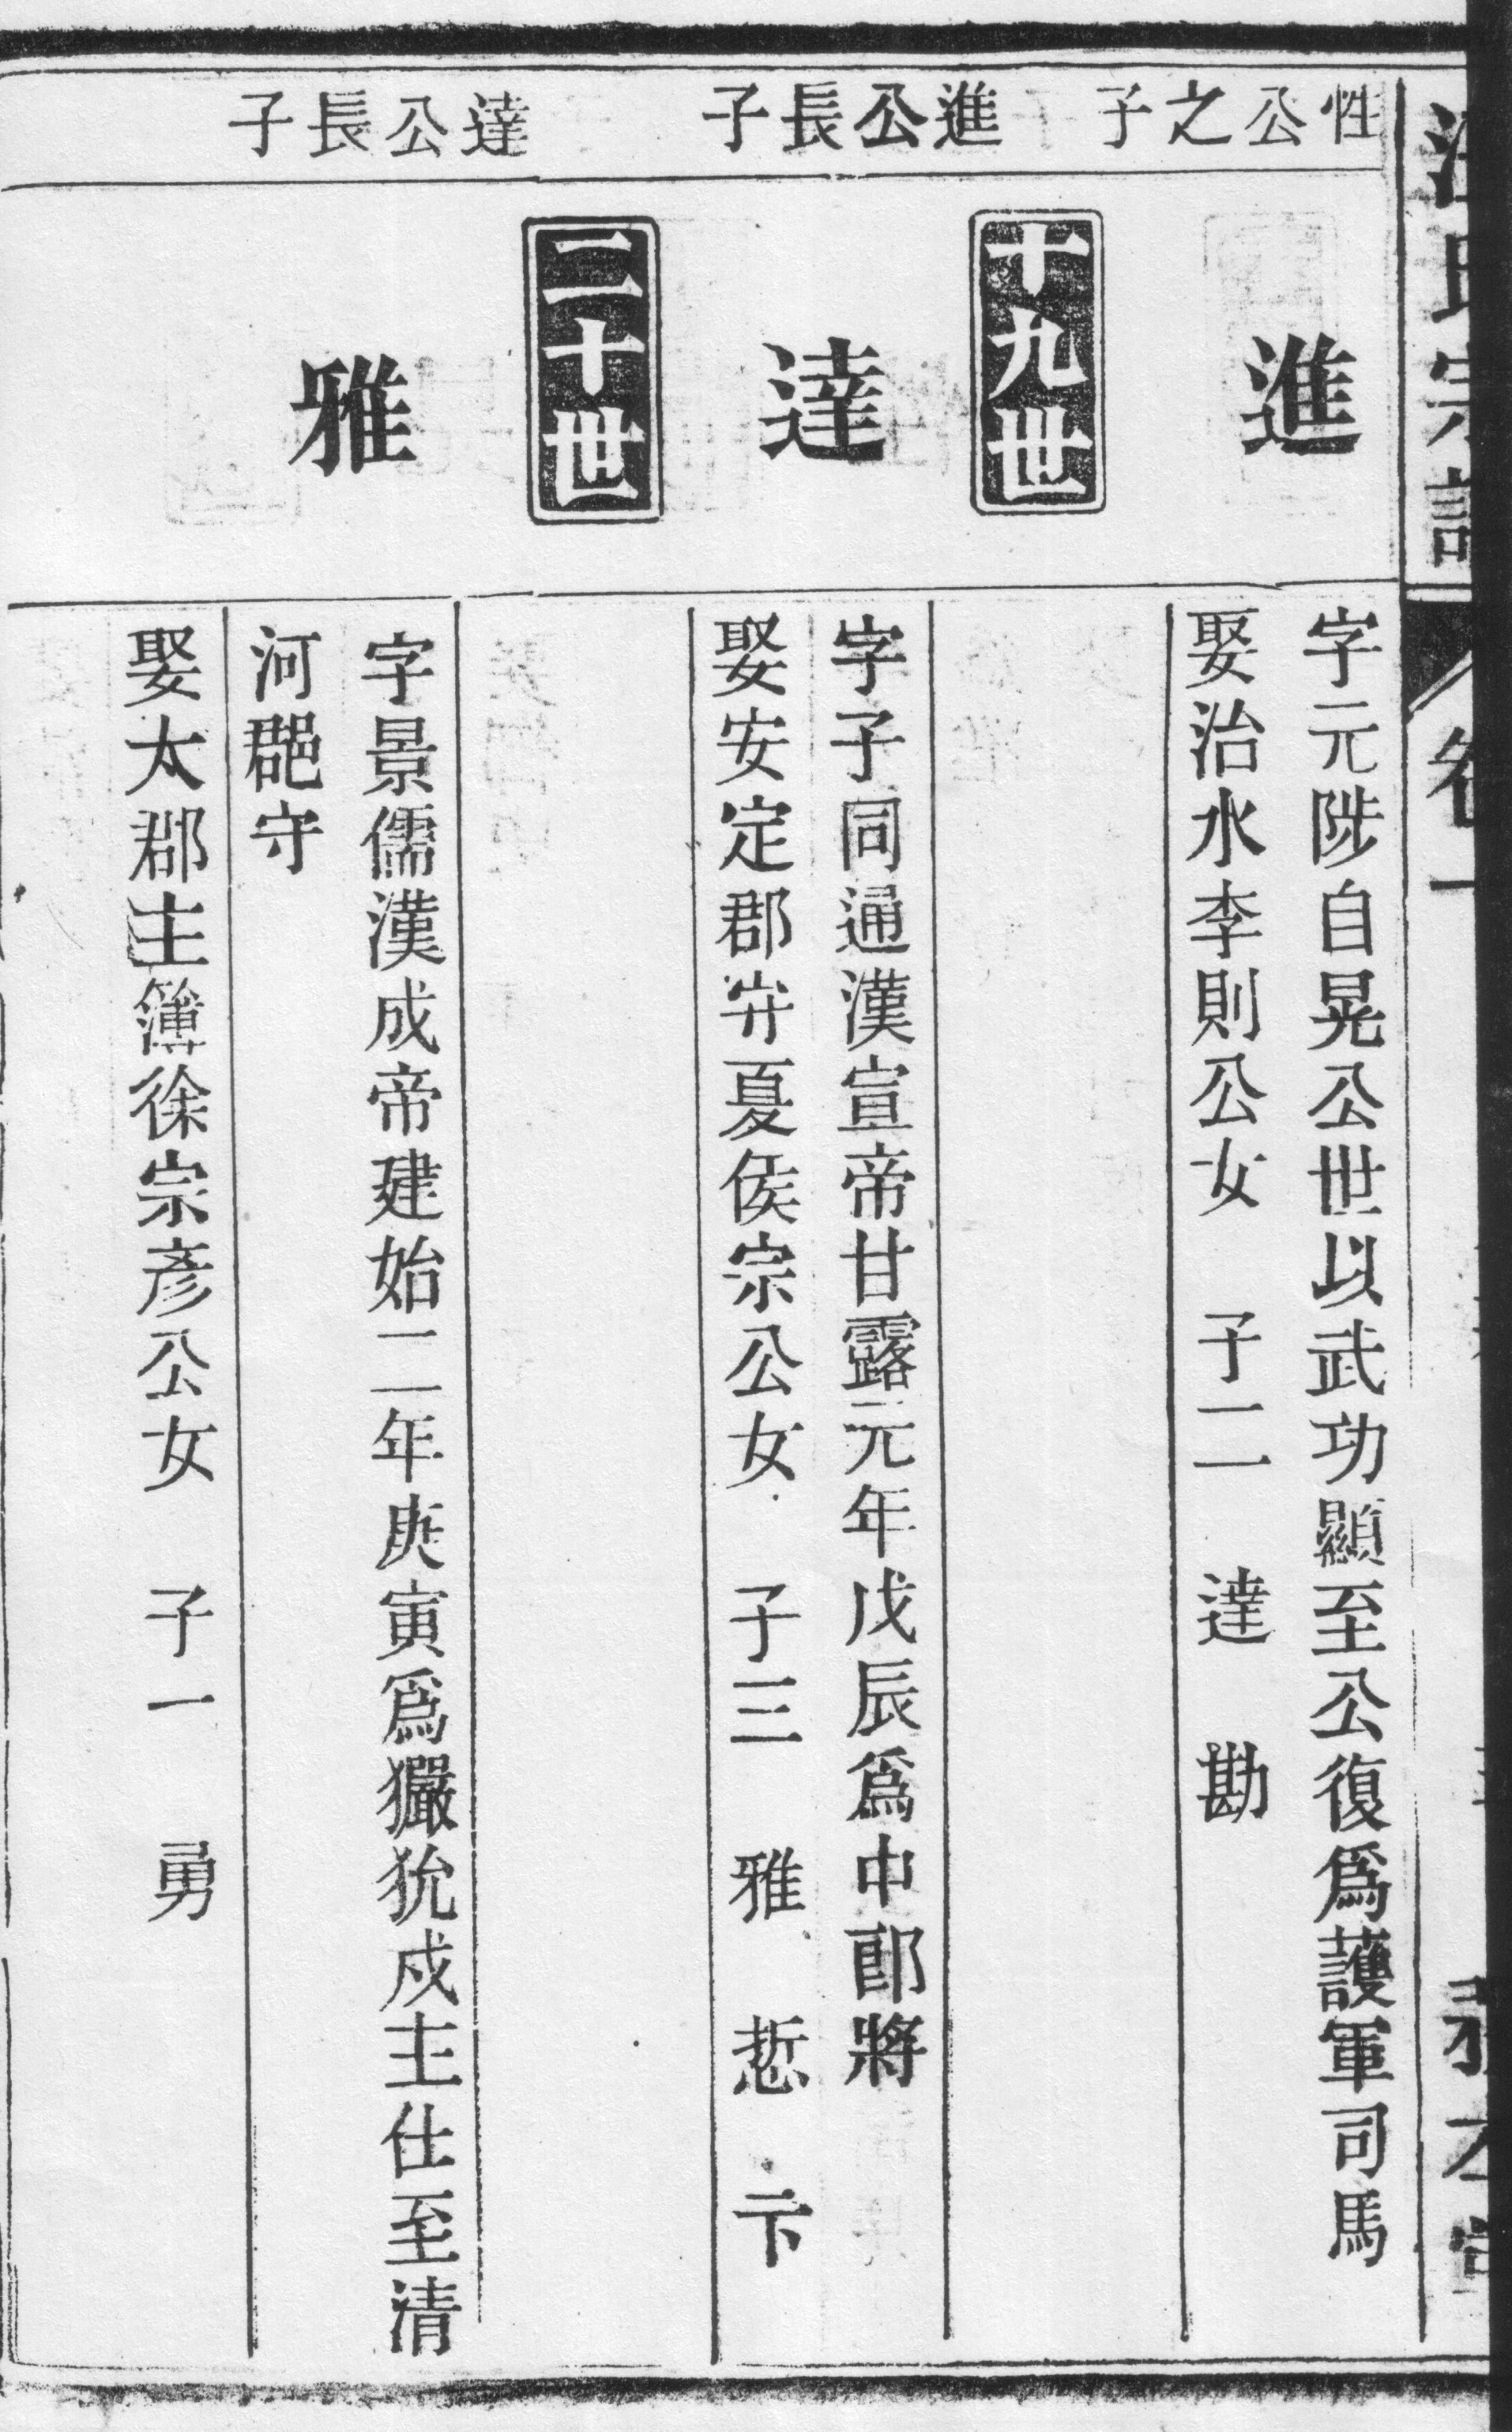 氏宗譜
卷一
性公之子
進
字元陟自晃公世以武功顯至公復爲護軍司馬
娶治水李則公女　子二　達　勘
十九世
進公長子
達
字子同通漢宣帝甘露元年戊辰爲中郎將
娶安定郡守夏侯宗公女　子三　雅　悊　卞
二十世
達公長子
雅
字景儒漢成帝建始二年庚寅爲玁狁成主仕至清
河郡守
娶太郡主簿徐宗彥公女　子一　勇